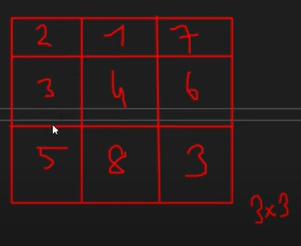 2 1 7
3 4 6
5 8 3
3x3